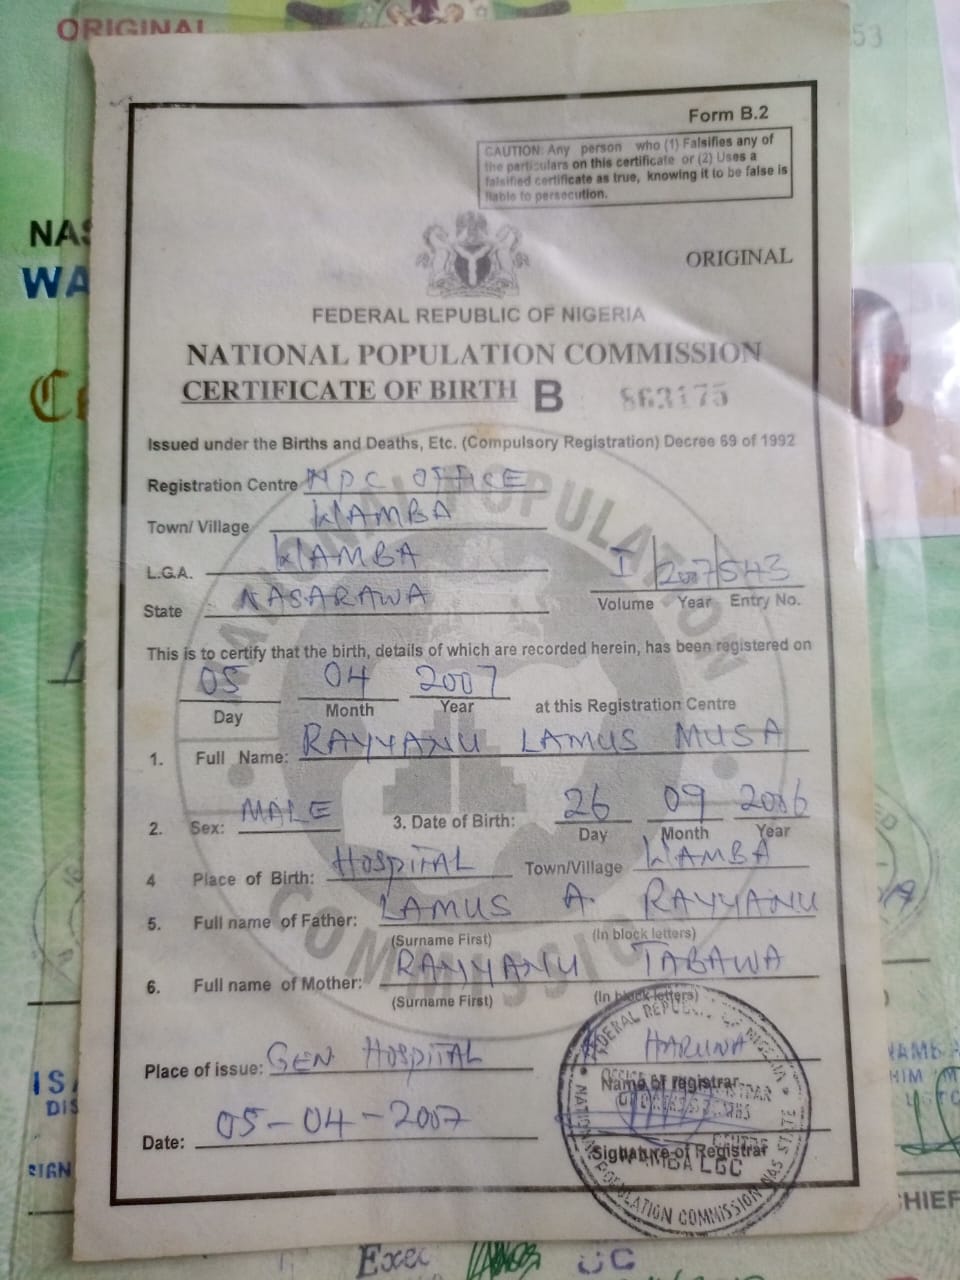 ORIGINAL
53
Form B.2
CAUTION: Any person who (1) Falsifies any of
the particulars on this certificate or (2) Uses a
falsified certificate as true, knowing it to be false is
liable to persecution.
NAS
WA
ORIGINAL
FEDERAL REPUBLIC OF NIGERIA
NATIONAL POPULATION COMMISSION
CERTIFICATE OF BIRTH B 863175
Issued under the Births and Deaths, Etc. (Compulsory Registration) Decree 69 of 1992
Registration Centre NPC OFFICE
Town/ Village WAMBA
L.G.A. WAMBA
State NASARAWA
I 2007 543
Volume Year Entry No.
This is to certify that the birth, details of which are recorded herein, has been registered on
05 04 2007
Day Month Year at this Registration Centre
1. Full Name: RAYYANU LAMUS MUSA
2. Sex: MALE 3. Date of Birth: 26 09
Day Month Year
4 Place of Birth: HOSPITAL Town/Village WAMBA
5. Full name of Father: LAMUS A. RAYYANU
(Surname First) (In block letters)
6. Full name of Mother: RAYYANU TABAWA
(Surname First) (In block letters)
Place of issue: GEN HOSPITAL
HARUNA
Name of registrar
Date: 05-04-2007
Signature of Registrar
WAMBA LGC
FEDERAL REPUBLIC OF NIGERIA
NATIONAL POPULATION COMMISSION NAS STATE
NATIONAL POPULATION COMMISSION
IS
DIS
SIGN
CHIEF
Exec